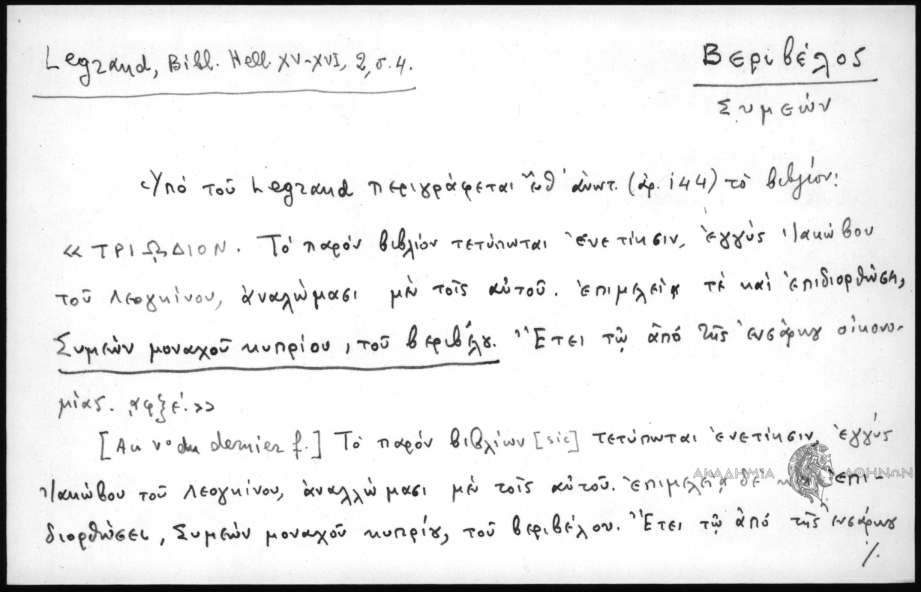 Legrand, Bibl. Hell. XV-XVI, 2, σ. 4.
Βεριβέλος
Συμεών
Ὑπό τοῦ Legrand περιγράφεται (ἀρ. 144) τὸ βιβλίον:
«ΤΡΙῼΔΙΟΝ. Τό παρόν βιβλίον τετύπωται ἐνετίησιν, ἐγγύς Ἰακώβου
τοῦ Λεογκίνου, ἀναλώμασι μὲν τοῖς αὐτοῦ. ἐπιμελείᾳ τὲ καὶ ἐπιδιορθώσει,
Συμεών μοναχοῦ κυπρίου, τοῦ βεριβέλου. Ἔτει τῷ ἀπό τῆς ἐνσάρκου οἰκονο-
μίας.
[Au v° du dernier f.] Τό παρόν βιβλίων [sic] τετύπωται ἐνετίησιν, ἐγγύς
Ἰακώβου τοῦ Λεογκίνου, ἀναλλώμασι μὲν τοῖς αὐτοῦ. ἐπιμελείᾳ δὲ ἐπι-
διορθώσει, Συμεών μοναχοῦ κυπρίου, τοῦ βεριβέλου. Ἔτει τῷ ἀπό τῆς ἐνσάρκου
./.
ΑΚΑΔΗΜΙΑ ΑΘΗΝΩΝ